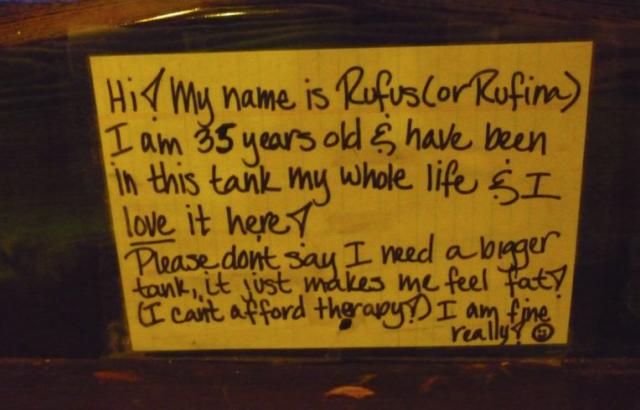 Hi! My name is Rufus (or Rufina)
I am 35 years old & have been
in this tank my whole life & I
love it here!
Please dont say I need a bigger
tank, it just makes me feel fat!
(I cant afford therapy!) I am fine
really! ☺